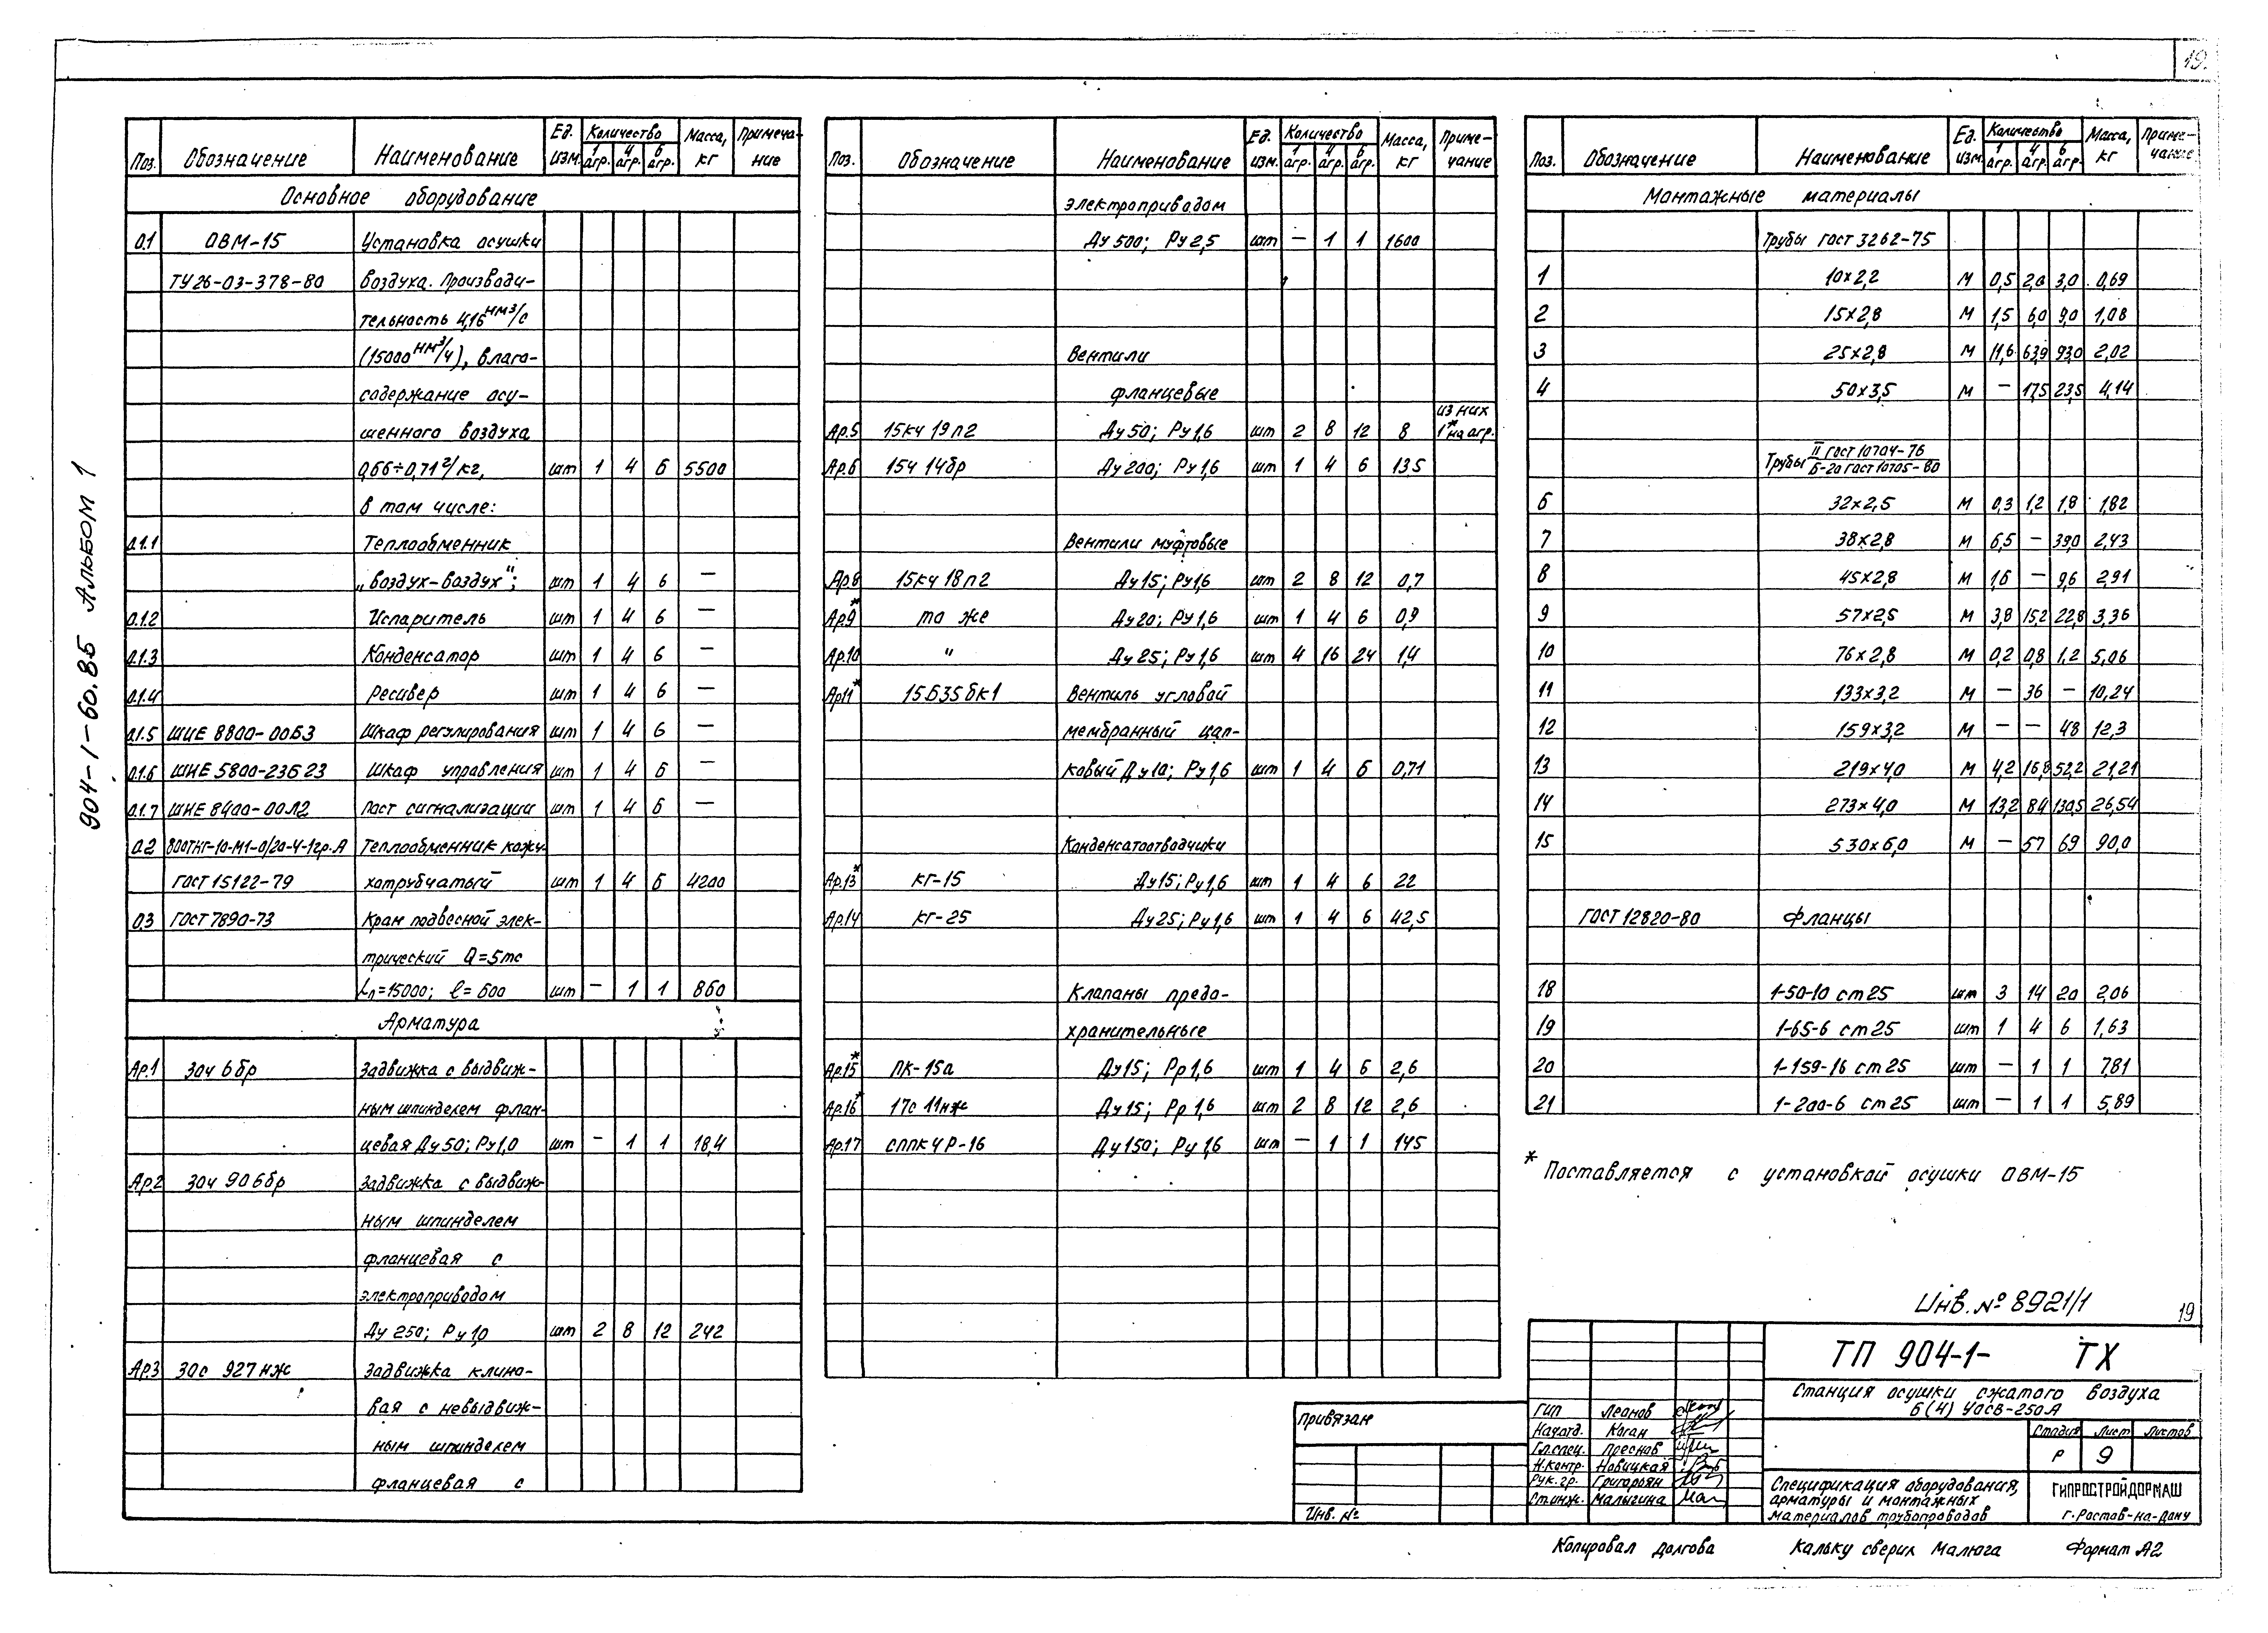 19.
904-1-60.85 Альбом 1
Поз. Обозначение Наименование Ед. изм. Количество 1 агр. 4 агр. 6 агр. Масса, кг Примеча-ние
Основное оборудование
0.1 ОВМ-15 Установка осушки
ТУ26-03-378-80 воздуха. Производи-
тельность 4,16 нм3/с
(15000 нм3/ч), влаго-
содержание осу-
шенного воздуха
0,66÷0,71 г/кг, шт 1 4 6 5500
в том числе:
0.1.1 Теплообменник
„воздух-воздух“; шт 1 4 6 —
0.1.2 Испаритель шт 1 4 6 —
0.1.3 Конденсатор шт 1 4 6 —
0.1.4 Ресивер шт 1 4 6 —
0.1.5 ШИЕ 8800-00Б3 Шкаф регулирования шт 1 4 6 —
0.1.6 ШНЕ 5800-23Б23 Шкаф управления шт 1 4 6 —
0.1.7 ШНЕ 8400-00Л2 Пост сигнализации шт 1 4 6 —
0.2 800ТНГ-10-М1-0/20-4-1гр.А Теплообменник кожу-
ГОСТ 15122-79 хотрубчатый шт 1 4 6 4200
0.3 ГОСТ 7890-73 Кран подвесной элек-
трический Q=5тс
Lп=15000; ℓ=600 шт — 1 1 860
Арматура
Ар.1 30ч 6бр Задвижка с выдвиж-
ным шпинделем флан-
цевая Ду50; Ру1,0 шт — 1 1 18,4
Ар.2 30ч 906бр Задвижка с выдвиж-
ным шпинделем
фланцевая с
электроприводом
Ду 250; Ру 1,0 шт 2 8 12 242
Ар.3 30с 927нж Задвижка клино-
вая с невыдвиж-
ным шпинделем
фланцевая с
Поз. Обозначение Наименование Ед. изм. Количество 1 агр. 4 агр. 6 агр. Масса, кг Приме-чание
электроприводом
Ду 500; Ру 2,5 шт — 1 1 1600
Вентили
фланцевые
Ар.5 15кч 19п2 Ду50; Ру1,6 шт 2 8 12 8 из них 1* на агр.
Ар.6 15ч 14бр Ду200; Ру1,6 шт 1 4 6 135
Вентили муфтовые
Ар.8 15кч 18п2 Ду15; Ру1,6 шт 2 8 12 0,7
Ар.9* то же Ду20; Ру1,6 шт 1 4 6 0,9
Ар.10 " Ду25; Ру1,6 шт 4 16 24 1,4
Ар11* 15Б35бк1 Вентиль угловой
мембранный цап-
ковый Ду10; Ру1,6 шт 1 4 6 0,71
Конденсатоотводчики
Ар.13* КГ-15 Ду15; Ру1,6 шт 1 4 6 22
Ар.14 КГ-25 Ду25; Ру1,6 шт 1 4 6 42,5
Клапаны предо-
хранительные
Ар.15* ПК-15а Ду15; Рр1,6 шт 1 4 6 2,6
Ар.16* 17с 11нж Ду15; Рр1,6 шт 2 8 12 2,6
Ар.17 СППК4Р-16 Ду150; Ру 1,6 шт — 1 1 145
Поз. Обозначение Наименование Ед. изм. Количество 1 агр. 4 агр. 6 агр. Масса, кг Приме-чание
Монтажные материалы
Трубы ГОСТ 3262-75
1 10х2,2 м 0,5 2,0 3,0 0,69
2 15х2,8 м 1,5 6,0 9,0 1,08
3 25х2,8 м 11,6 63,9 93,0 2,02
4 50х3,5 м — 17,5 23,5 4,14
Трубы II ГОСТ 10704-76
Б-20 ГОСТ 10705-80
6 32х2,5 м 0,3 1,2 1,8 1,82
7 38х2,8 м 6,5 — 39,0 2,43
8 45х2,8 м 1,6 — 9,6 2,91
9 57х2,5 м 3,8 15,2 22,8 3,36
10 76х2,8 м 0,2 0,8 1,2 5,06
11 133х3,2 м — 36 — 10,24
12 159х3,2 м — — 48 12,3
13 219х4,0 м 4,2 16,8 52,2 21,21
14 273х4,0 м 13,2 84 130,5 26,54
15 530х6,0 м — 57 69 90,0
ГОСТ 12820-80 Фланцы
18 1-50-10 ст25 шт 3 14 20 2,06
19 1-65-6 ст25 шт 1 4 6 1,63
20 1-159-16 ст25 шт — 1 1 7,81
21 1-200-6 ст25 шт — 1 1 5,89
* Поставляется с установкой осушки ОВМ-15
Инв. № 8921/1
19
ТП 904-1- ТХ
Станция осушки сжатого воздуха
6(4) УОСВ-250А
Привязан
Инв. №
ГИП Леонов
Нач.отд. Коган
Гл.спец. Преснов
Н.контр. Новицкая
Рук.гр. Григорьян
Ст.инж. Малыгина
Стадия Лист Листов
Р 9
Спецификация оборудования,
арматуры и монтажных
материалов трубопроводов
ГИПРОСТРОЙДОРМАШ
г. Ростов-на-Дону
Копировал Долгова Кальку сверил Малюга Формат А2